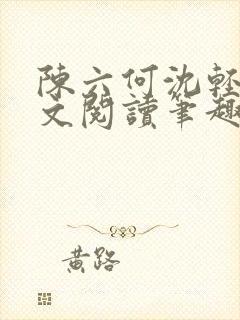 陳六何沈輕
文閱讀筆趣
黃路